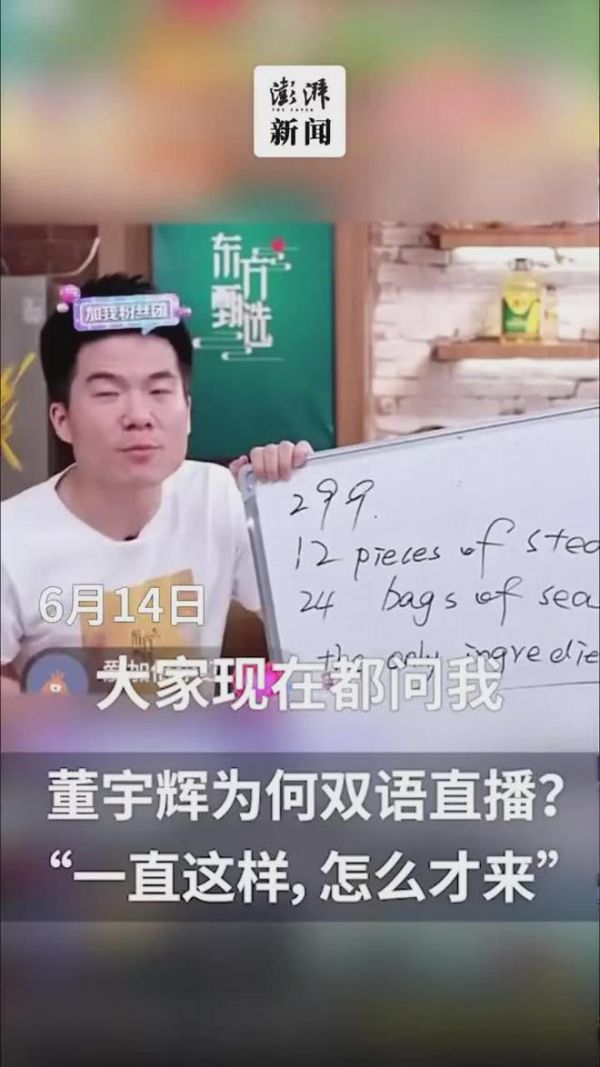 澎湃
THE PAPER
新闻
东方
甄选
加我粉丝团
299.
12 pieces of
24 bags of
the only
6月14日
大家现在都问我
董宇辉为何双语直播？
“一直这样，怎么才来”